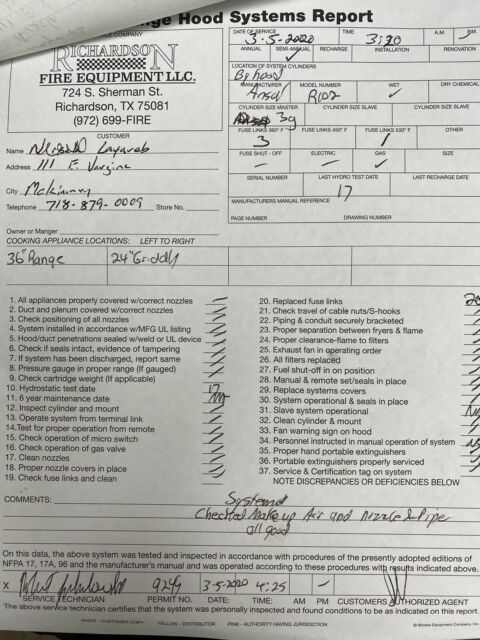 nge Hood Systems Report
CE COMPANY
RICHARDSON
FIRE EQUIPMENT LLC.
724 S. Sherman St.
Richardson, TX 75081
(972) 699-FIRE
DATE OF SERVICE 3-5-2020 TIME 3:20 A.M. P.M.
ANNUAL SEMI-ANNUAL ✓ RECHARGE INSTALLATION RENOVATION
LOCATION OF SYSTEM CYLINDERS
By hood
MANUFACTURER MODEL NUMBER WET DRY CHEMICAL
Ansul R102 ✓
CYLINDER SIZE MASTER CYLINDER SIZE SLAVE CYLINDER SIZE SLAVE
3g
FUSE LINKS 360° F FUSE LINKS 450° F FUSE LINKS 500° F OTHER
3 1
FUSE SHUT - OFF ELECTRIC GAS SIZE
— — ✓
SERIAL NUMBER LAST HYDRO TEST DATE LAST RECHARGE DATE
17
MANUFACTURERS MANUAL REFERENCE
PAGE NUMBER DRAWING NUMBER
CUSTOMER
Name
Address 111 E.
City McKinney
Telephone 718-879-0009 Store No.
Owner or Manger
COOKING APPLIANCE LOCATIONS: LEFT TO RIGHT
36" Range 24" Griddly
1. All appliances properly covered w/correct nozzles
2. Duct and plenum covered w/correct nozzles
3. Check positioning of all nozzles
4. System installed in accordance w/MFG UL listing
5. Hood/duct penetrations sealed w/weld or UL device
6. Check if seals intact, evidence of tampering
7. If system has been discharged, report same
8. Pressure gauge in proper range (If gauged)
9. Check cartridge weight (If applicable)
10. Hydrostatic test date 17
11. 6 year maintenance date
12. Inspect cylinder and mount
13. Operate system from terminal link
14. Test for proper operation from remote
15. Check operation of micro switch
16. Check operation of gas valve
17. Clean nozzles
18. Proper nozzle covers in place
19. Check fuse links and clean
20. Replaced fuse links
21. Check travel of cable nuts/S-hooks
22. Piping & conduit securely bracketed
23. Proper separation between fryers & flame
24. Proper clearance-flame to filters
25. Exhaust fan in operating order
26. All filters replaced
27. Fuel shut-off in on position
28. Manual & remote set/seals in place
29. Replace systems covers
30. System operational & seals in place
31. Slave system operational
32. Clean cylinder & mount
33. Fan warning sign on hood
34. Personnel instructed in manual operation of system
35. Proper hand portable extinguishers
36. Portable extinguishers properly serviced
37. Service & Certification tag on system
NOTE DISCREPANCIES OR DEFICIENCIES BELOW
COMMENTS: System
Checked Make up Air and Nozzle & Pipe
all good
On this data, the above system was tested and inspected in accordance with procedures of the presently adopted editions of
NFPA 17, 17A, 96 and the manufacturer's manual and was operated according to these procedures with results indicated above.
X 3-5-2020 4:25 —
SERVICE TECHNICIAN PERMIT NO. DATE: TIME: AM PM CUSTOMERS AUTHORIZED AGENT
The above service technician certifies that the system was personally inspected and found conditions to be as indicated on this report.
WHITE - CUSTOMER COPY YELLOW - DISTRIBUTOR PINK - AUTHORITY HAVING JURISDICTION
© Brooks Equipment Company, Inc.